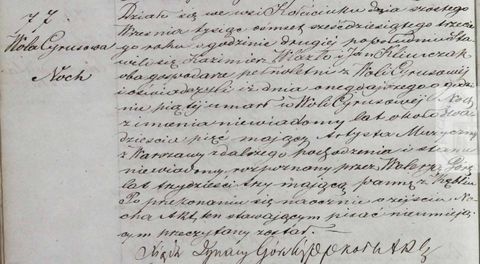 77.
Wola Cyrusowa
Noch
Działo się we wsi Kościuku dnia szóstego
Września tysiąc ośmset sześćdziesiątego trzecie
go roku o godzinie drugiej popołudniu Sta
wili się Kazimierz i Jan Klimczak
obagospodarze pełnoletni z Woli Cyrusowej
i oświadczyli iż dnia onegdajszego o godzi
nie piątej umarł w Woli Cyrusowej Noch
z imienia niewiadomy lat około dwa
dzieścia pięć mający Artysta Muzyczny
z Warszawy z dalszego pochodzenia i stanu
niewiadomy, rozpoznany przez Walerją
lat trzydzieści trzy mającą pannę z
Po przekonaniu się naocznie o zejściu No
cha Akt ten stawającym pisać nieumieją
cym przeczytany został.
Ignacy